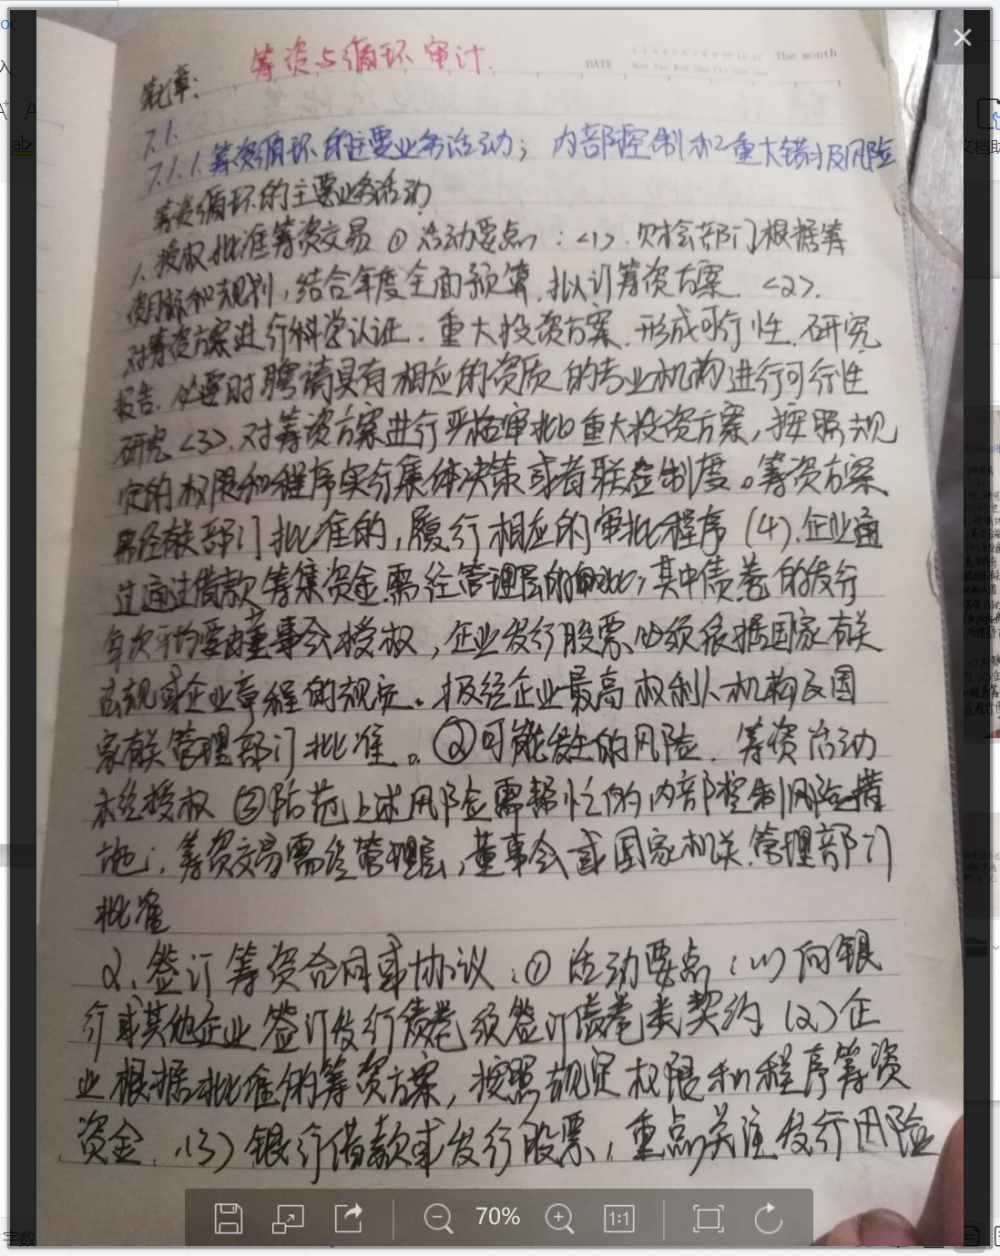 筹资与循环审计.
DATE
The month
第七章:
7.1.
7.1.1.筹资循环的主要业务活动；内部控制和重大错报风险
筹资循环的主要业务活动
1.授权批准筹资交易 ①活动要点：<1>.财会部门根据筹
资目标和规划，结合年度全面预算.拟订筹资方案.<2>.
对筹资方案进行科学认证.重大投资方案.形成可行性.研究
报告.必要时聘请具有相应的资质的专业机构进行可行性
研究<3>.对筹资方案进行严格审批重大投资方案，按照规
定的权限和程序实行集体决策或者联签制度。筹资方案
需经有关部门批准的，履行相应的审批程序 (4).企业通
过通过借款筹集资金需经管理层的审批，其中债卷的发行
每次均要由董事会授权，企业发行股票必须依据国家有关
法规或企业章程的规定。报经企业最高权利人机构及国
家有关管理部门批准。②可能发生的风险.筹资活动
未经授权 ③防范上述风险需帮忙的内部控制风险措
施；筹资交易需经管理层，董事会或国家机关.管理部门
批准
2.签订筹资合同或协议：①活动要点：(1)向银
行或其他企业签订发行债卷须签订债卷类契约 (2)企
业根据批准的筹资方案，按照规定权限和程序筹资
资金.(3)银行借款或发行股票，重点关注发行风险
70%
1:1
字数